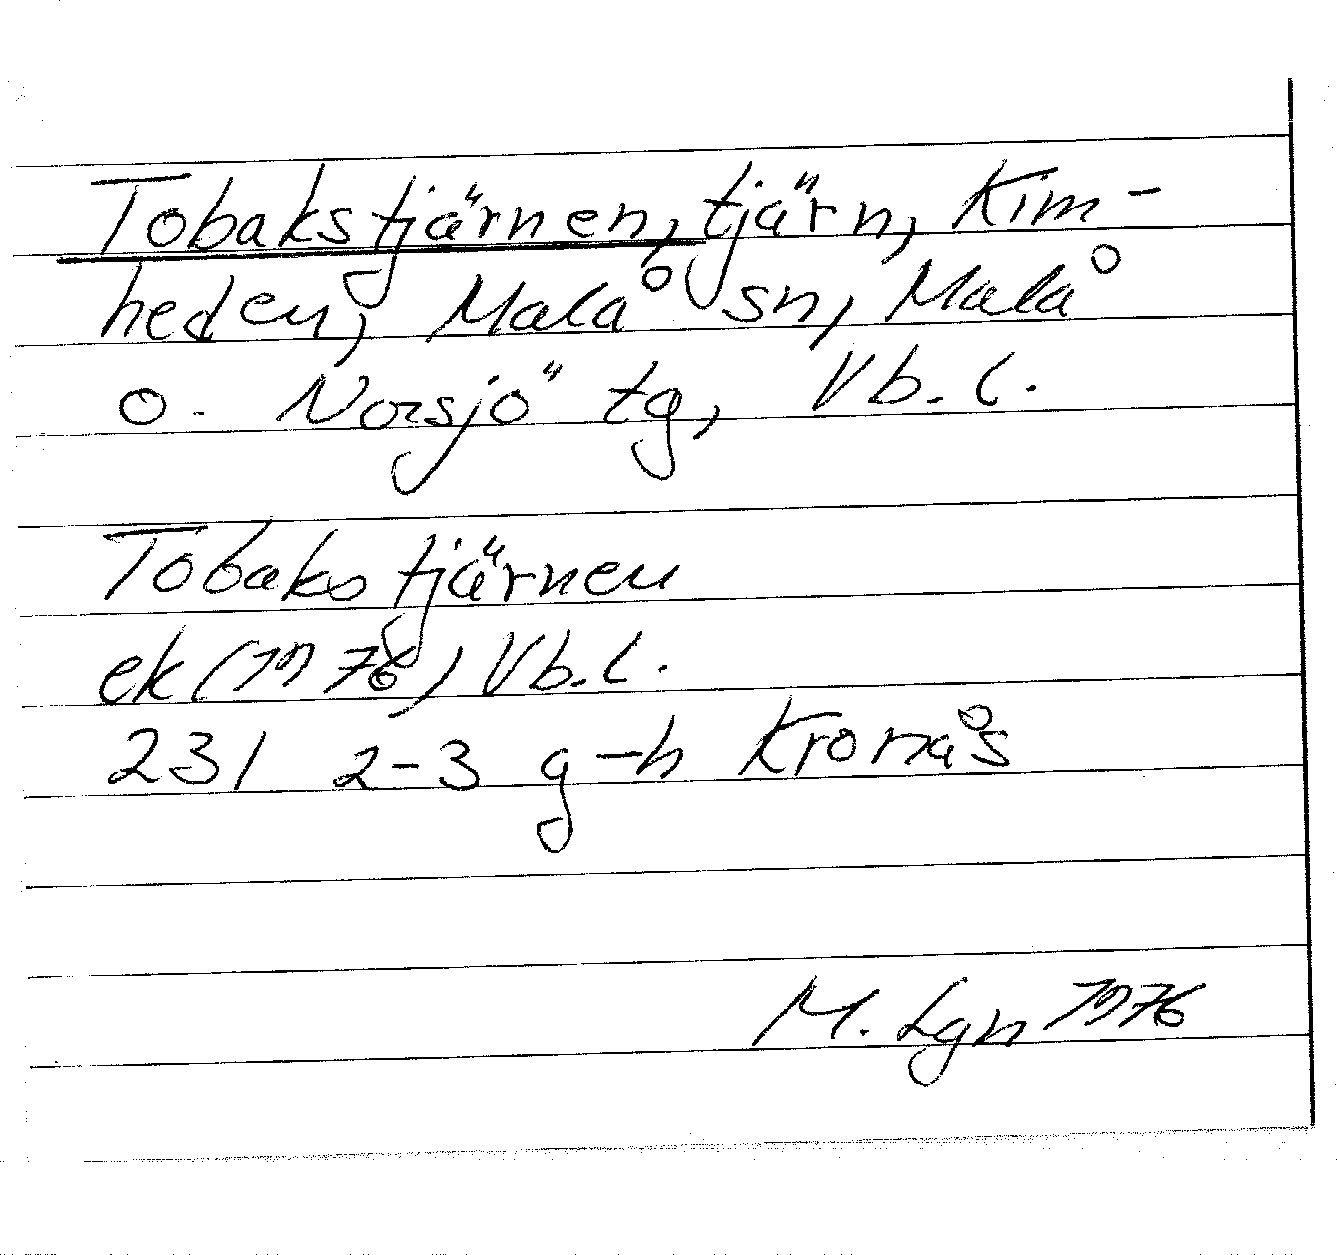 Tobakstjärnen, tjärn, Kim-
heden, Malå sn, Malå
o. Norsjö tg, Vb. l.
Tobakstjärnen
ek (1976) Vb. l.
23I 2-3 g-h Kronås
M. Lgn 1976